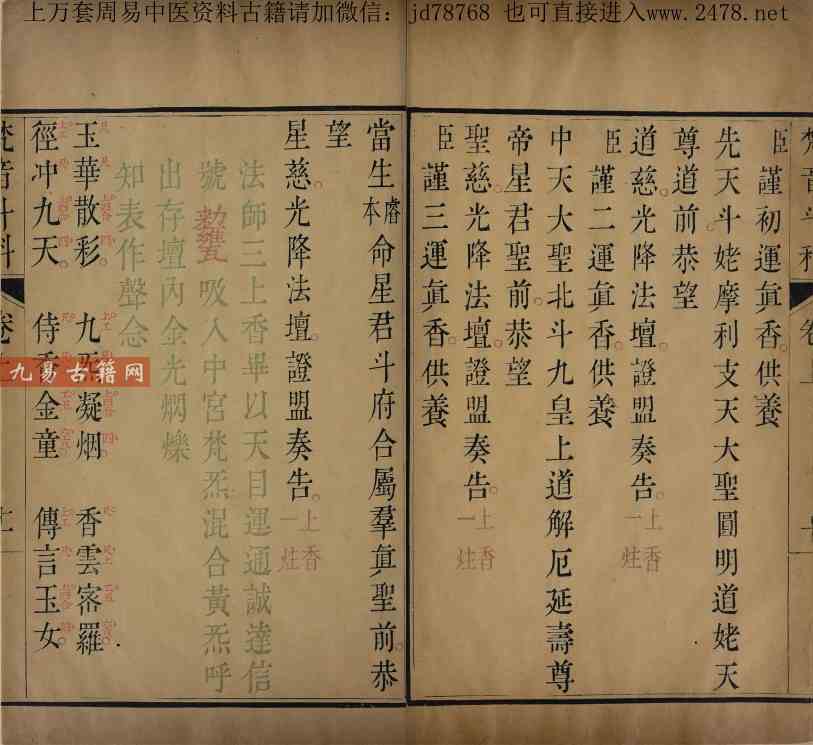 上万套周易中医资料古籍请加微信：jd78768 也可直接进入www.2478.net
臣謹初運眞香。供養
先天斗姥摩利支天大聖圓明道姥天
尊道前。恭望
道慈。光降法壇。證盟奏告。上香一炷
臣謹二運眞香。供養
中天大聖北斗九皇上道解厄延壽尊
帝星君聖前。恭望
聖慈。光降法壇。證盟奏告。上香一炷
臣謹三運眞香。供養
當生本命星君斗府合屬羣眞聖前。恭
望
星慈。光降法壇。證盟奏告。上香一炷
法師三上香畢以天目運通誠達信
號吸入中宮梵炁混合黃炁呼
出存壇內金光烱爍
知表作聲念
玉華散彩 九炁凝烟 香雲宻羅
徑冲九天 侍香金童 傳言玉女
梵音斗科 卷上
九易古籍网